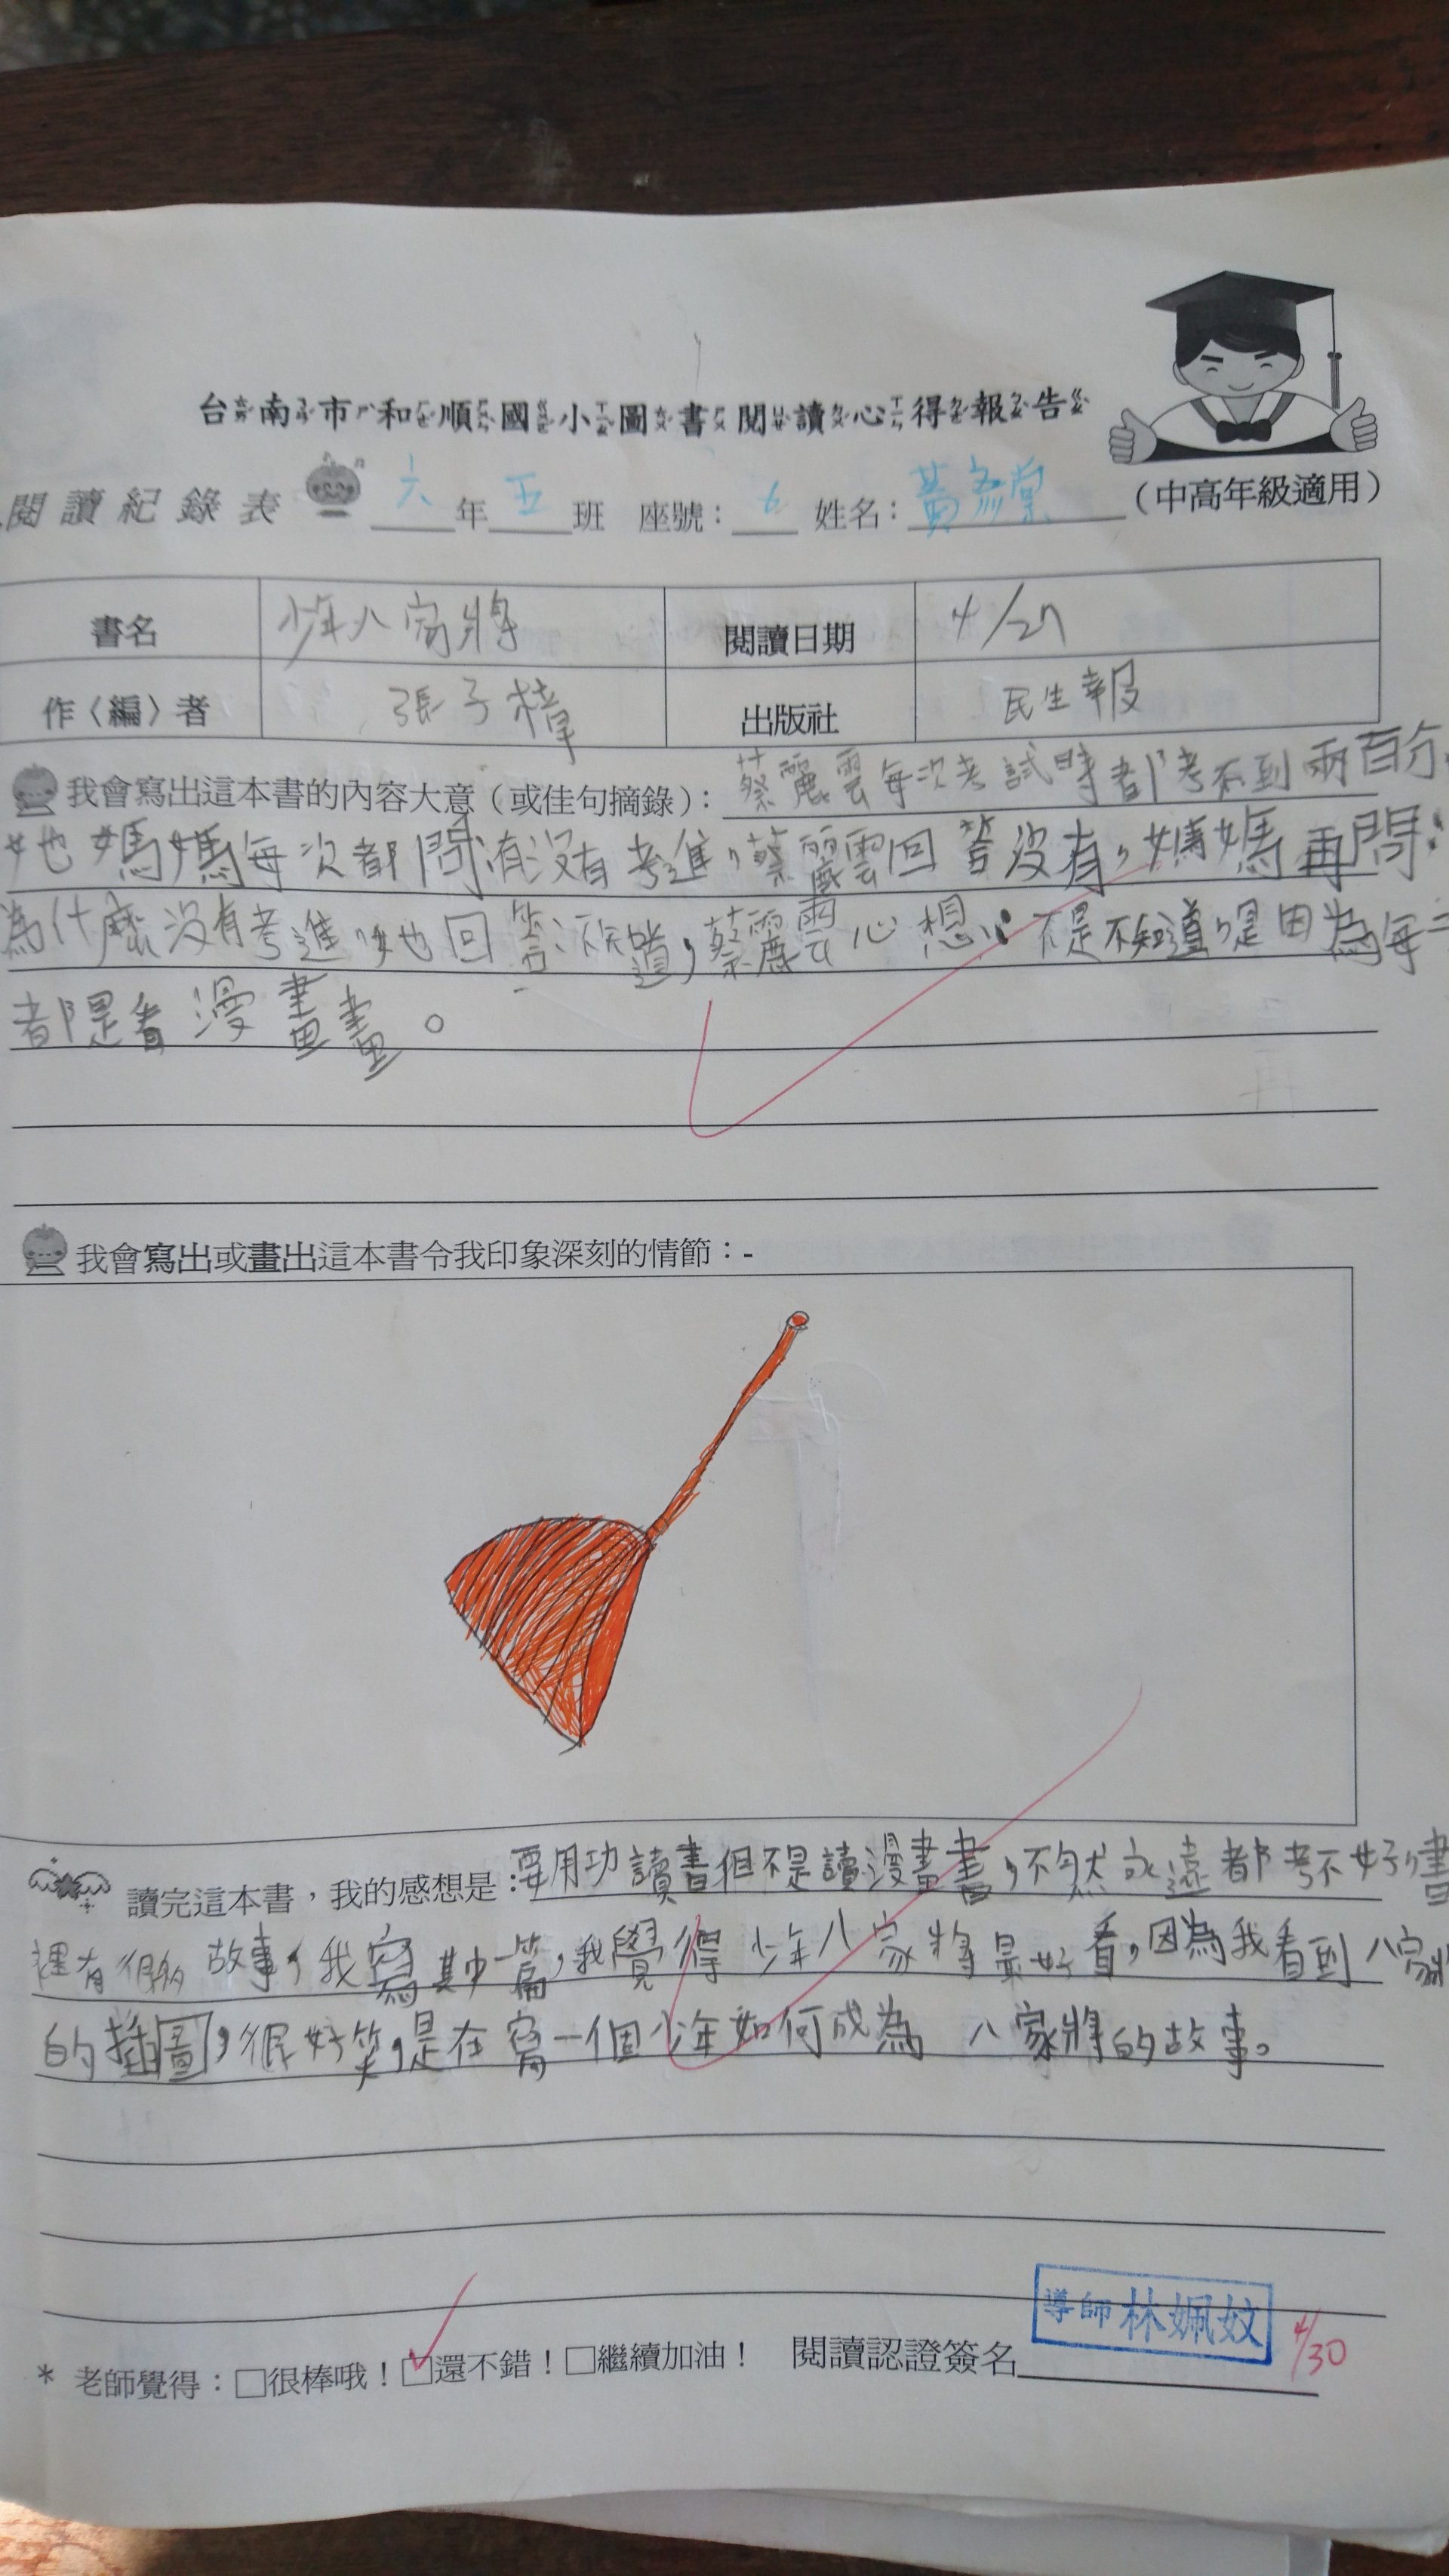 台南市和順國小圖書閱讀心得報告
閱讀紀錄表 六年五班 座號：6 姓名：黃
（中高年級適用）
書名 少年八家將 閱讀日期 4/27
作〈編〉者 張子樟 出版社 民生報
我會寫出這本書的內容大意（或佳句摘錄）：蔡麗雲每次考試時都考不到兩百分，
她媽媽每次都問有沒有考進，蔡麗雲回答沒有，媽媽再問：
為什麼沒有考進，她回答：不知道，蔡麗雲心想：不是不知道，是因為每
都是看漫畫書。
我會寫出或畫出這本書令我印象深刻的情節：-
讀完這本書，我的感想是：要用功讀書但不是讀漫畫書，不然永遠都考不好，書
裡有很多故事，我寫其中一篇，我覺得少年八家將最好看，因為我看到八家將
的插圖，很好笑，是在寫一個少年如何成為八家將的故事。
導師 林姵妏
4/30
* 老師覺得：□很棒哦！□還不錯！□繼續加油！ 閱讀認證簽名